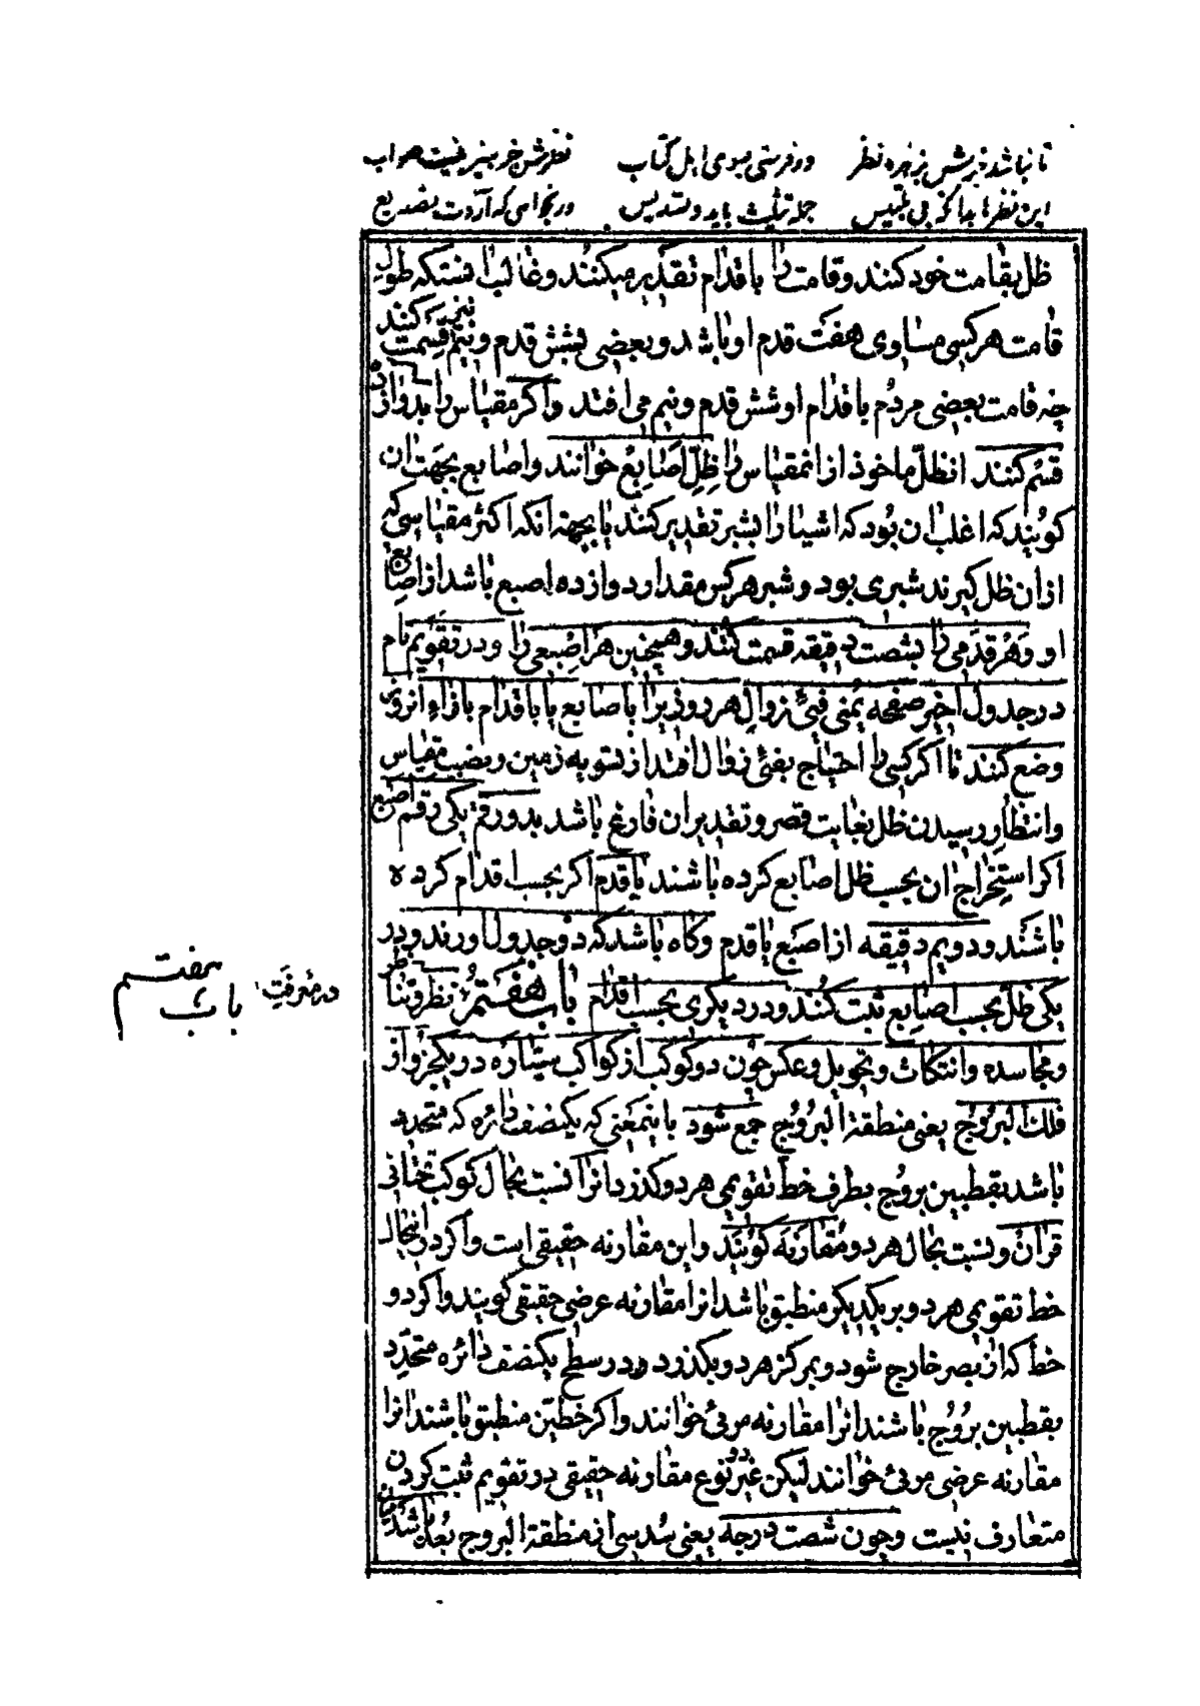 تا نباشد پرشش زهره نظر ور فرستی بسوی اهل کتاب نظرش خر بتیر نیست صواب
این نظرها بدانکه بی تلبیس جمله تثلیث باید و تسدیس
ظل بقامت خود کنند و قامت را باقدام تقدیر میکنند و غالب انستکه طول
قامت هر کسی مساوی هفت قدم او باشد و بعضی بشش قدم و نیم قسمت کنند
چه قامت بعضی مردم باقدام او شش قدم و نیم می افتد و اکر مقیاس را بدوازده
قسم کنند انظل ماخوذ از انمقیاس را ظل اصابع خوانند و اصابع بجهت ان
کویند که اغلب ان بود که اشیا را بشبر تقدیر کنند یا بجهة انکه اکثر مقیاسی که
ازان ظل کیرند شبری بود و شبر هر کس مقدار دوازده اصبع باشد از اصابع
او و هر قدمی را بشصت دقیقه قسمت کنند و همچنین هر اصبعی را و در تقویم تام
در جدول اخیر صفحه یمنی فیئ زوال هر روزیرا باصابع یا باقدام بازاء انروز
وضع کنند تا اکر کسی را احتیاج بفئ زوال افتد از تسویه زمین و نصب مقیاس
و انتظار رسیدن ظل بغایت قصر و تقدیر ان فارغ باشد بدو رقم یکی رقم اصبع
اکر استخراج ان بحسب ظل اصابع کرده باشند یا قدم اکر بحسب اقدام کرده
باشند و دویم دقیقه از اصبع یا قدم و کاه باشد که دو جدول اورند و در
یکی ظل بحسب اصابع ثبت کنند و در دیکری بحسب اقدام باب هفتم نظر و تناظر
و مجاسده و انتکاث و تحویل و عکس چون دو کوکب از کواکب سیتاره در یکجزو از
فلک البروج یعنی منطقة البروج جمع شود باینمعنی که یکنصف دائره که متحدد
باشد بقطبین بروج بطرف خط تقویمی هر دو کذرد انرا نسبت بحال کوکب تحتانی
قران و نسبت بحال هر دو مقارنه کویند و این مقارنه حقیقی است و اکر در انحال
خط تقویمی هر دو بر یکدیکر منطبق باشد انرا مقارنه عرضی حقیقی کویند و اکر دو
خط که از بصر خارج شود و بمرکز هر دو بکذرد در سطح یکنصف دائره متحدد
بقطبین بروج باشند انرا مقارنه مرئی خوانند و اکر خطین منطبق باشند انرا
مقارنه عرضی مرئی خوانند لیکن غیر نوع مقارنه حقیقی در تقویم ثبت کردن
متعارف نیست و چون شصت درجه یعنی سدسی از منطقة البروج بعد باشد میان
باب هفتم
در معرفت